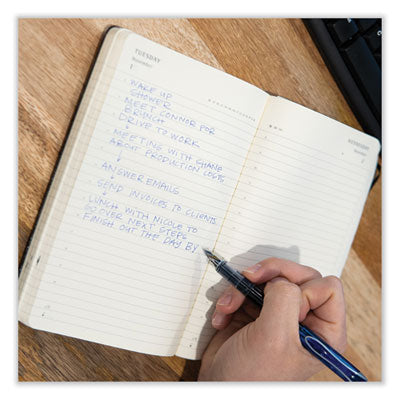 TUESDAY
November
1
· WAKE UP
SHOWER
MEET CONNOR FOR
BRUNCH
DRIVE TO WORK
↓
MEETING WITH SHANE
ABOUT PRODUCTION LOGS
↓
ANSWER EMAILS
↓
SEND INVOICES TO CLIENTS
↓
· LUNCH WITH NICOLE TO
GO OVER NEXT STEPS
· FINISH OUT THE DAY BY
WEDNESDAY
November
2